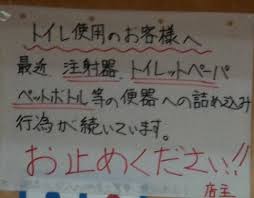 トイレ使用のお客様へ
最近 注射器、トイレットペーパ
ペットボトル等の便器への詰め込み
行為が続いています。
お止めください!!
店主